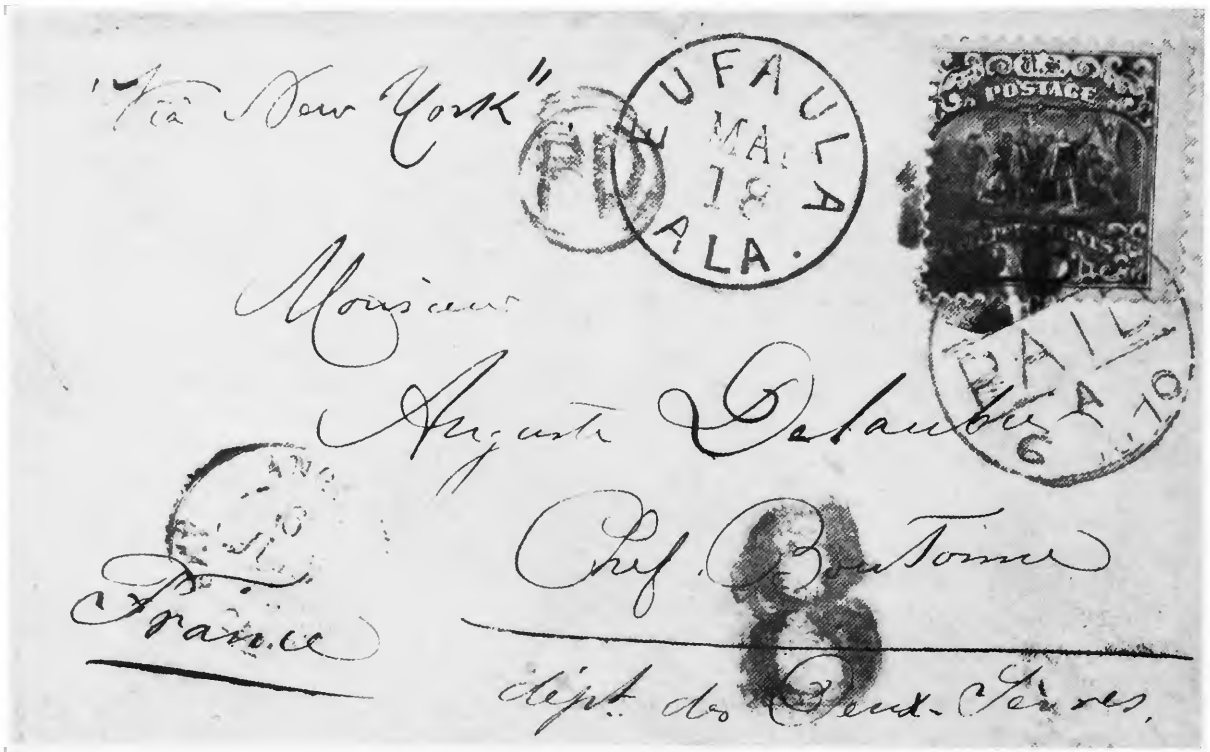 "Via New York"
PD
EUFAULA
MA.
18
ALA.
U.S.
POSTAGE
Monsieur
Auguste
PAID
A
6 70
ANG
Chef Boutonne
8
France
dépt. des Deux-Sèvres.